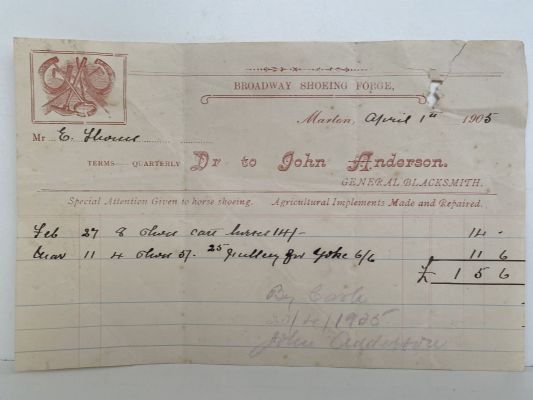 BROADWAY SHOEING FORGE,
Marton, April 1st 1905
Mr E. Thomas
TERMS — QUARTERLY Dr to John Anderson.
GENERAL BLACKSMITH.
Special Attention Given to horse shoeing. Agricultural Implements Made and Repaired.
Feb 27 8 shoes horses 14/- 14 -
Mar 11 4 shoes 5/- for Yoke 6/6 11 6
£ 1 5 6
By Cash
/4/1905
John Anderson